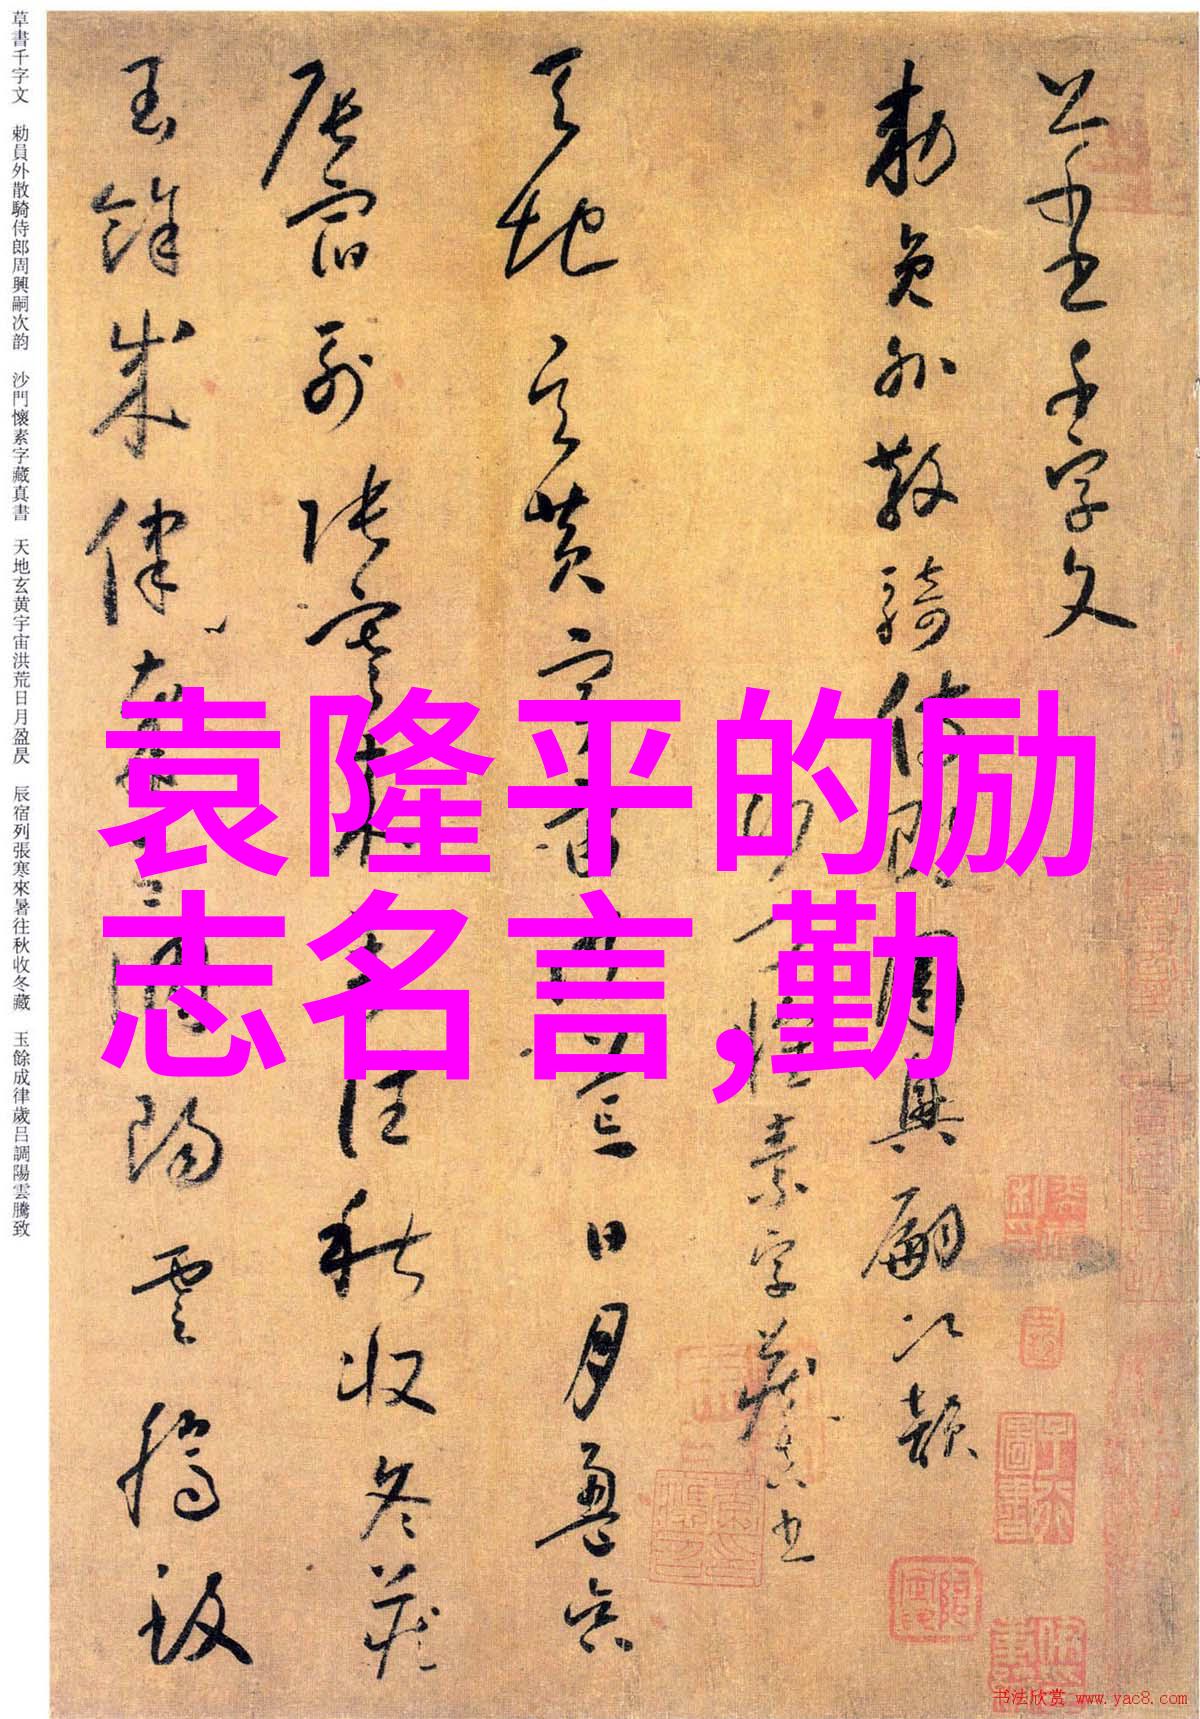 草書千字文 勅員外散騎侍郎周興嗣次韵 沙門懷素字藏真書 天地玄黄宇宙洪荒日月盈昃 辰宿列張寒來暑往秋收冬藏 玉餘成律歲呂調陽雲騰致
草書千字文
勅員外散騎侍郎周興嗣次韻
沙門懷素字藏真書
天地玄黄宇宙洪荒日月盈昃
辰宿列張寒來暑往秋收冬藏
玉餘成律歲呂調陽雲騰致
袁隆平的励
志名言,勤
书法欣赏 www.yac8.com